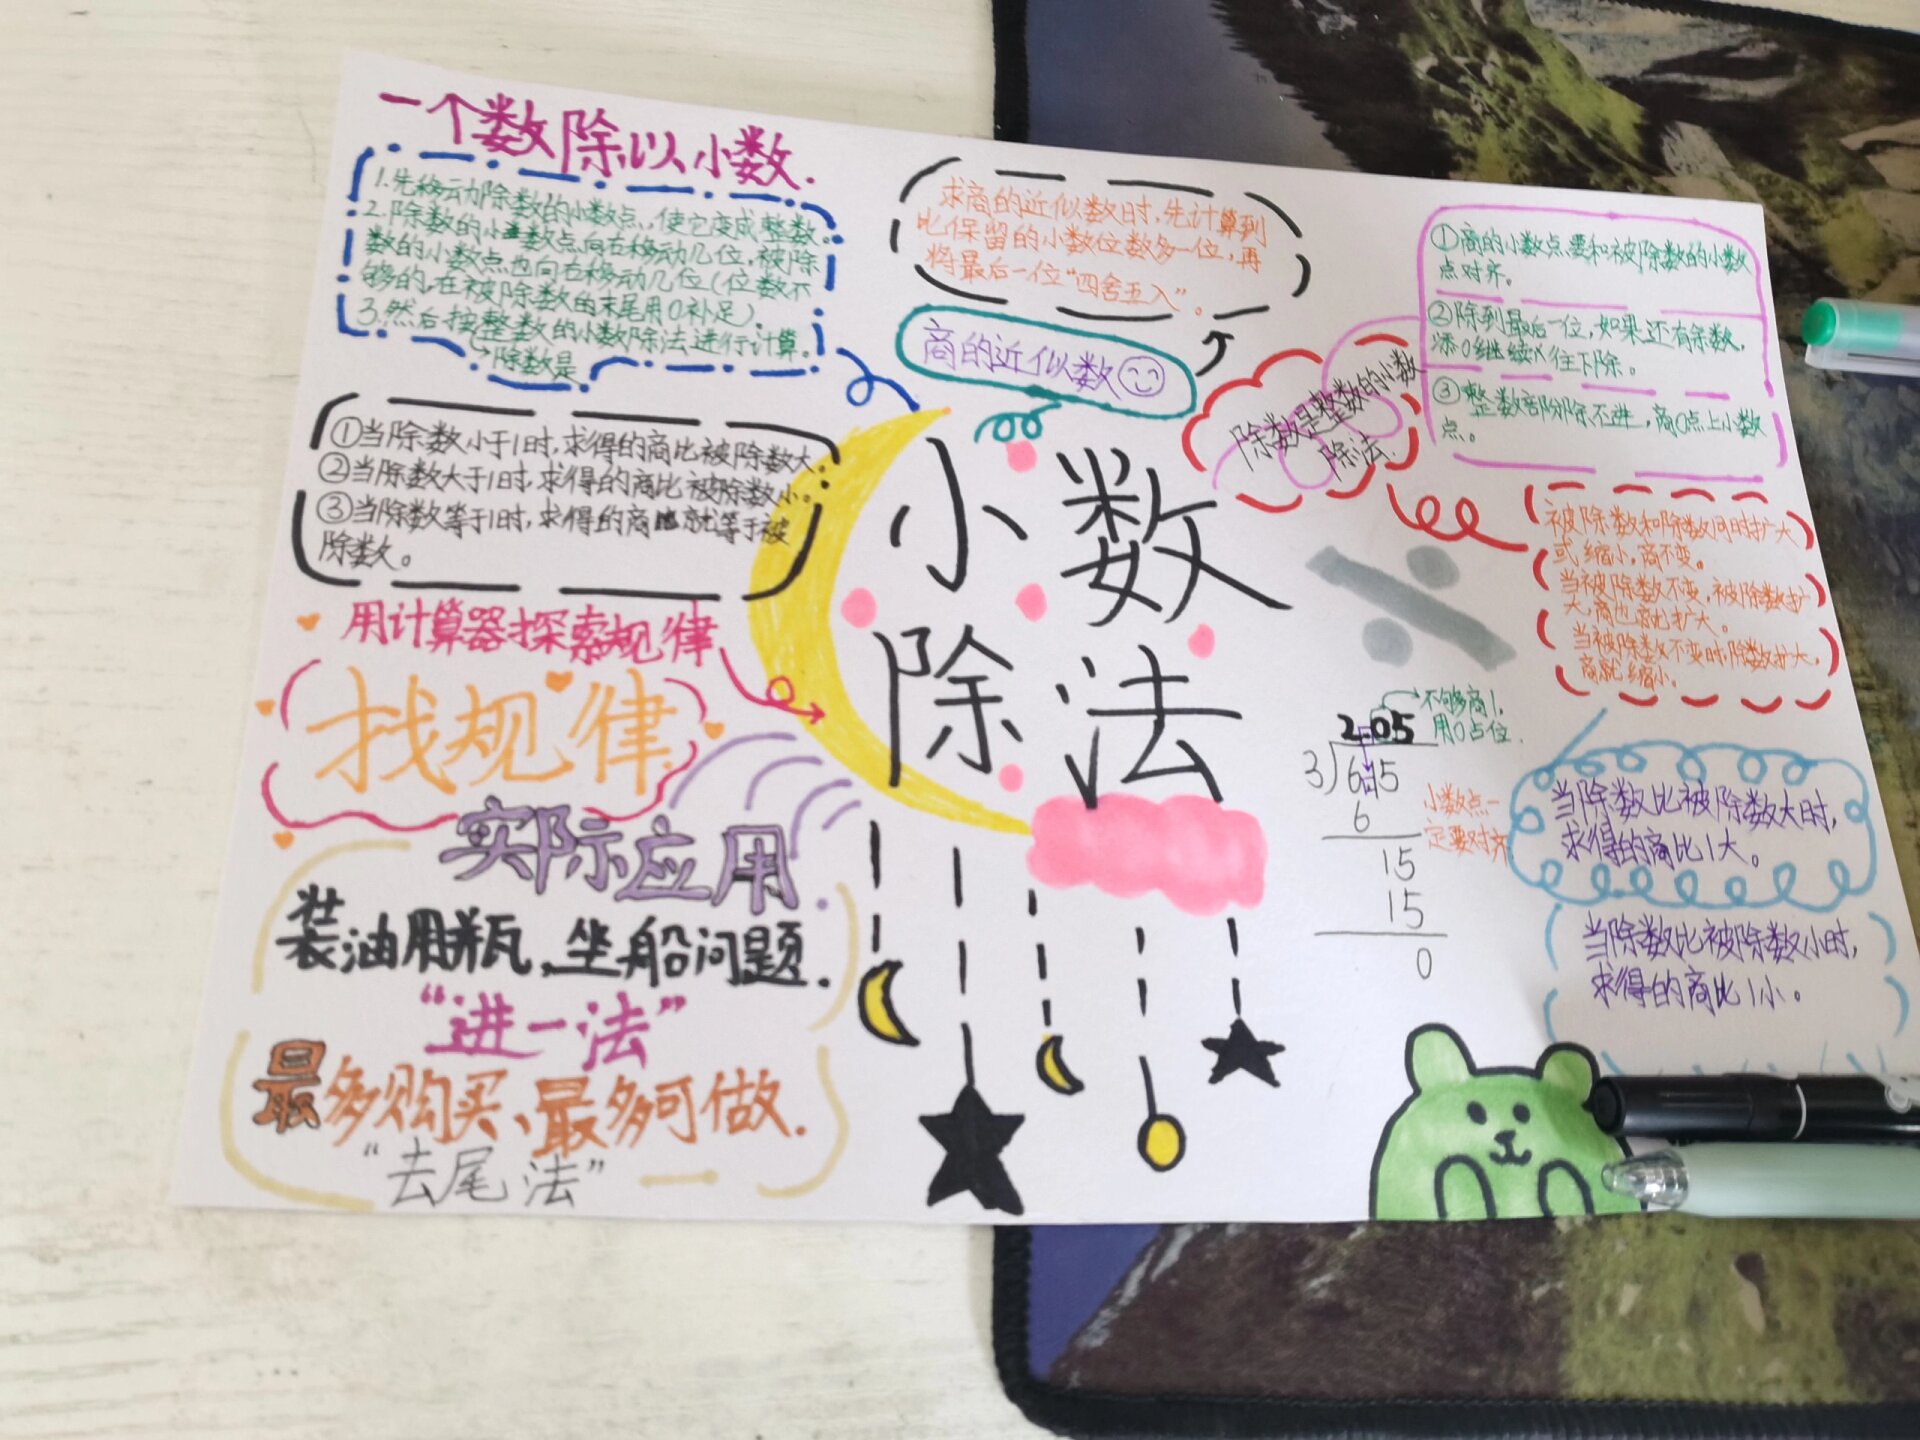 一个数除以小数.
1.先移动除数的小数点,使它变成整数。
2.除数的小数点向右移动几位,被除
数的小数点也向右移动几位(位数不
够的,在被除数的末尾用0补足)。
3.然后按整数的小数除法进行计算。
除数是
①当除数小于1时,求得的商比被除数大。
②当除数大于1时,求得的商比被除数小。
③当除数等于1时,求得的商就等于被
除数。
用计算器探索规律
找规律
实际应用
装油用瓶、坐船问题.
“进一法”
最多购买、最多可做.
“去尾法”
求商的近似数时,先计算到
比保留的小数位数多一位,再
将最后一位“四舍五入”。
商的近似数
小数
除法
除数是整数的小数
除法.
①商的小数点要和被除数的小数
点对齐。
②除到最后一位,如果还有余数,
添0继续往下除。
③整数部分除不进,商0点上小数
点。
被除数和除数同时扩大
或缩小,商不变。
当被除数不变,被除数扩
大,商也就扩大。
当被除数不变时,除数扩大,
商就缩小。
不够商1,
用0占位.
2.05
3)6.15
6
小数点一
定要对齐
15
15
0
当除数比被除数大时,
求得的商比1大。
当除数比被除数小时,
求得的商比1小。